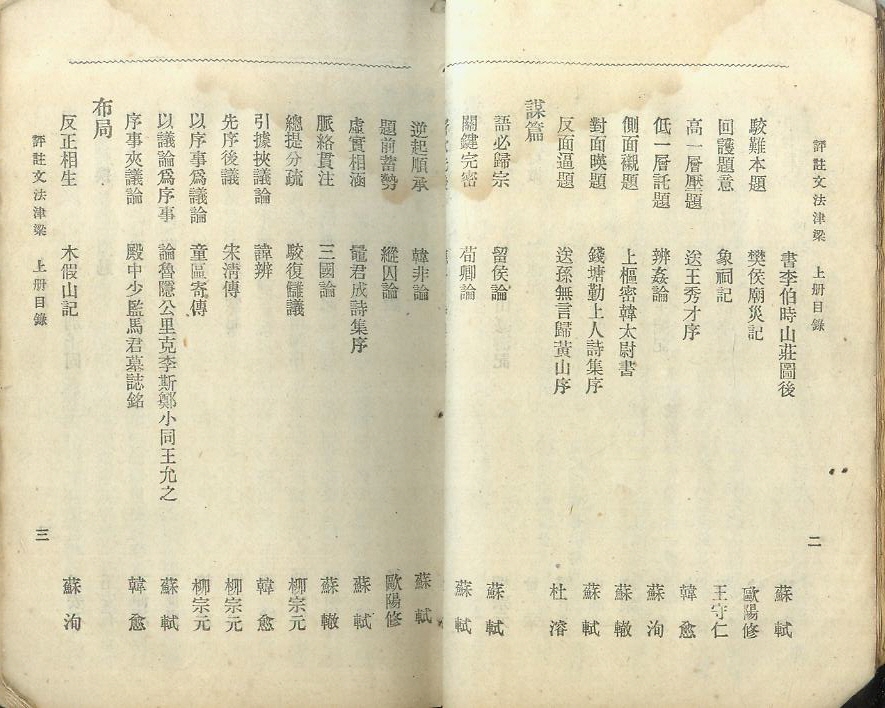 評註文法津梁 上册目錄 二
書李伯時山莊圖後 蘇軾
駁難本題 樊侯廟災記 歐陽修
回護題意 象祠記 王守仁
高一層壓題 送王秀才序 韓愈
低一層託題 辨姦論 蘇洵
側面襯題 上樞密韓太尉書 蘇轍
對面暎題 錢塘勤上人詩集序 蘇軾
反面逼題 送孫無言歸黃山序 杜濬
謀篇
語必歸宗 留侯論 蘇軾
關鍵完密 荀卿論 蘇軾
逆起順承 韓非論 蘇軾
題前蓄勢 縱囚論 歐陽修
虛實相涵 鼂君成詩集序 蘇軾
脈絡貫注 三國論 蘇轍
總提分疏 駁復讎議 柳宗元
引據挾議論 諱辨 韓愈
先序後議 宋淸傳 柳宗元
以序事爲議論 童區寄傳 柳宗元
以議論爲序事 論魯隱公里克李斯鄭小同王允之 蘇軾
序事夾議論 殿中少監馬君墓誌銘 韓愈
布局
反正相生 木假山記 蘇洵
評註文法津梁 上册目錄 三